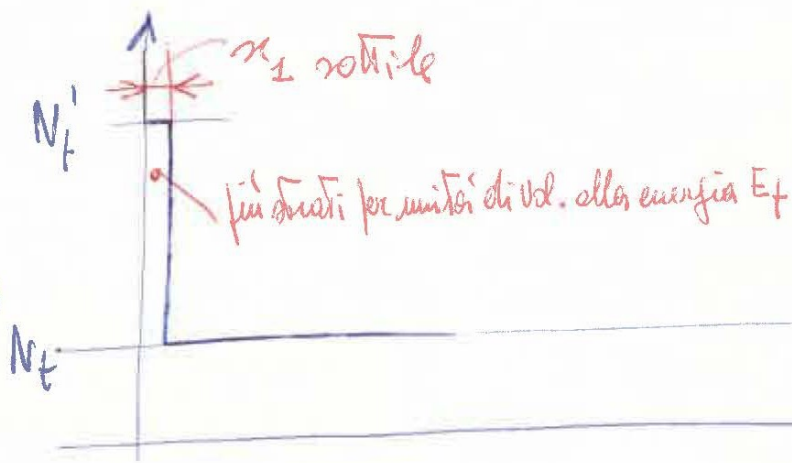 x₁ sottile
Nₜ'
più stati per unità di vol. alla energia Eₜ
Nₜ